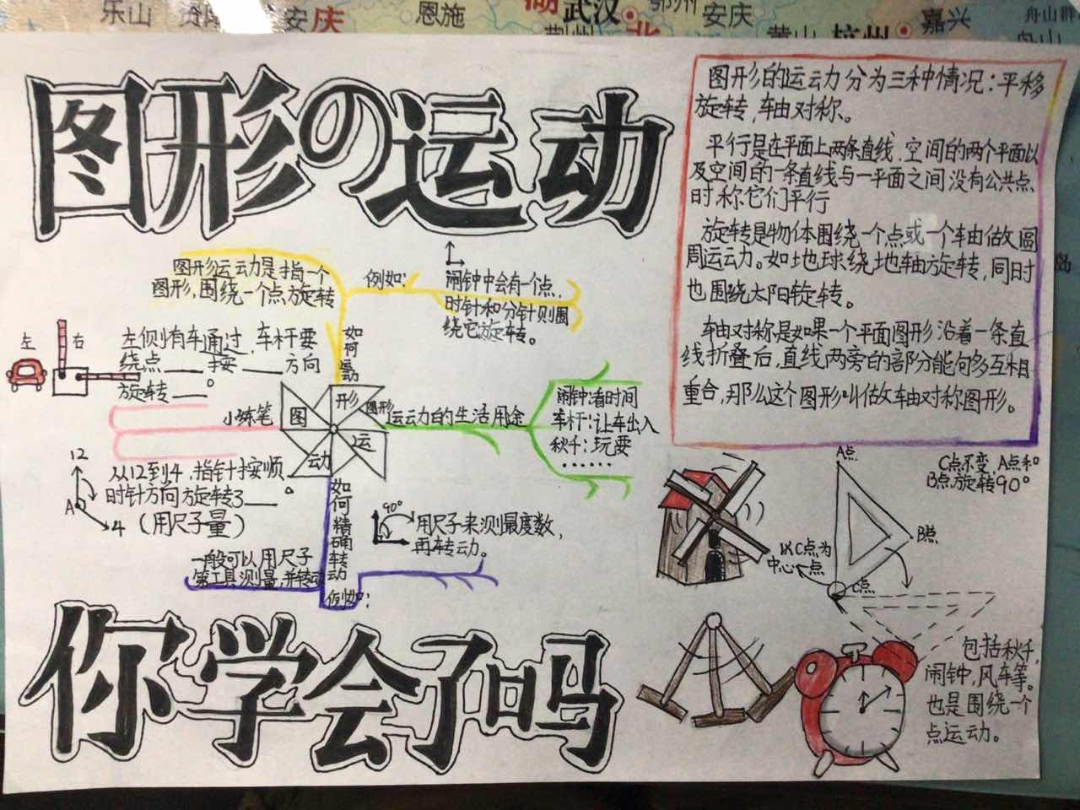 乐山
安庆
恩施
武汉
安庆
黄山
杭州
嘉兴
舟山群
岛
图形の运动
图形的运动分为三种情况:平移
旋转,轴对称。
平行是在平面上两条直线、空间的两个平面以
及空间的一条直线与一平面之间没有公共点
时称它们平行
旋转是物体围绕一个点或一个轴做圆
周运动。如地球绕地轴旋转,同时
也围绕太阳旋转。
轴对称是如果一个平面图形沿着一条直
线折叠后,直线两旁的部分能够多互相
重合,那么这个图形叫做轴对称图形。
图形运动是指一个
图形,围绕一个点旋转
例如:
闹钟中会有一个点,
时针和分针则围
绕它旋转。
如何
左
右
左侧有车通过,车杆要
绕点____按____方向
旋转____。
小练笔
图
形
运
动
图形
运动的生活用途
闹钟:看时间
车杆:让车出入
秋千:玩耍
……
12
A
4
从12到4,指针按顺
时针方向旋转了____。
(用尺子量)
如何精确转动
90°
用尺子来测量度数,
再转动。
一般可以用尺子
等工具测量,并转动
例如:
A点
C点不变,A点和
B点旋转90°
B点
以C点为
中心点
C点
包括秋千,
闹钟,风车等。
也是围绕一个
点运动。
你学会了吗